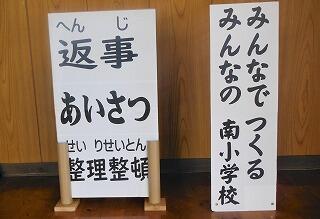 へんじ
返事
あいさつ
せいりせいとん
整理整頓
みんなで つくる
みんなの 南小学校